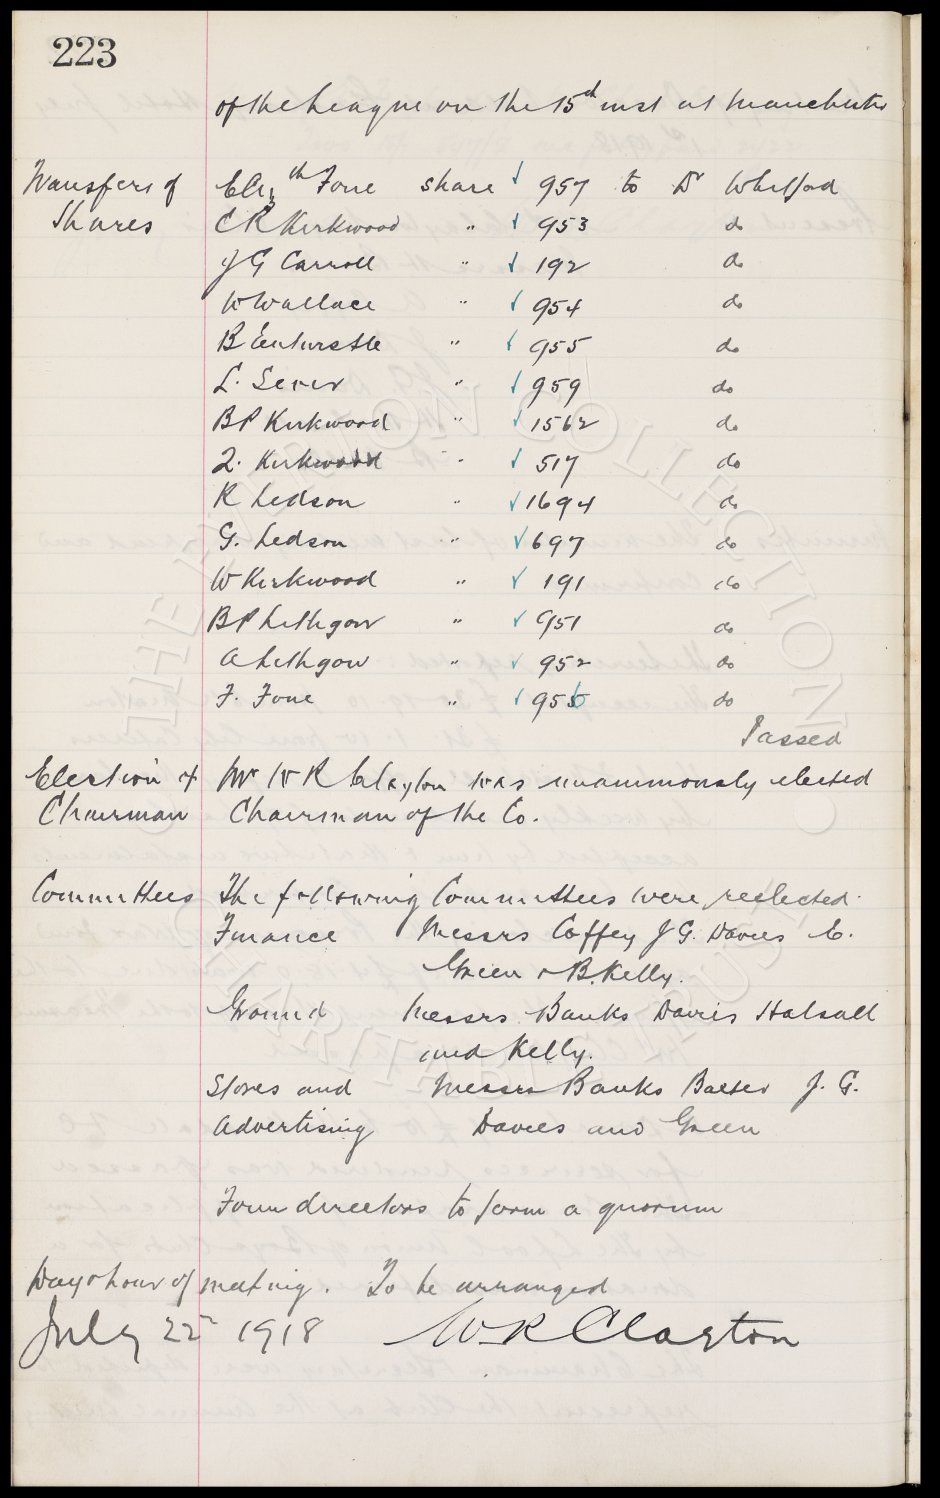 223
of the League on the 15th inst at Manchester
Transfers of Elizth Fone share 957 to Dr Whitford
Shares C R Kirkwood " 953 do
J G Carroll " 192 do
W Wallace " 954 do
B Entwistle " 955 do
L. Sever " 959 do
B P Kirkwood " 1562 do
Z. Kirkwood " 517 do
R Ledson " 1694 do
G. Ledson " 697 do
W Kirkwood " 191 do
B P Lithgow " 951 do
A Lithgow " 952 do
F. Fone " 956 do
Passed
Election of Mr W R Clayton was unanimously elected
Chairman Chairman of the Co.
Committees The following Committees were reelected.
Finance Messrs Coffey J G. Davies E.
Green & B. Kelly.
Ground Messrs Banks Davies Halsall
and Kelly.
Stores and Messrs Banks Baxter J. G.
Advertising Davies and Green
Four directors to form a quorum
Day & hour of meeting. To be arranged
July 22nd 1918 W R Clayton
THE EVERTON COLLECTION CHARITABLE TRUST